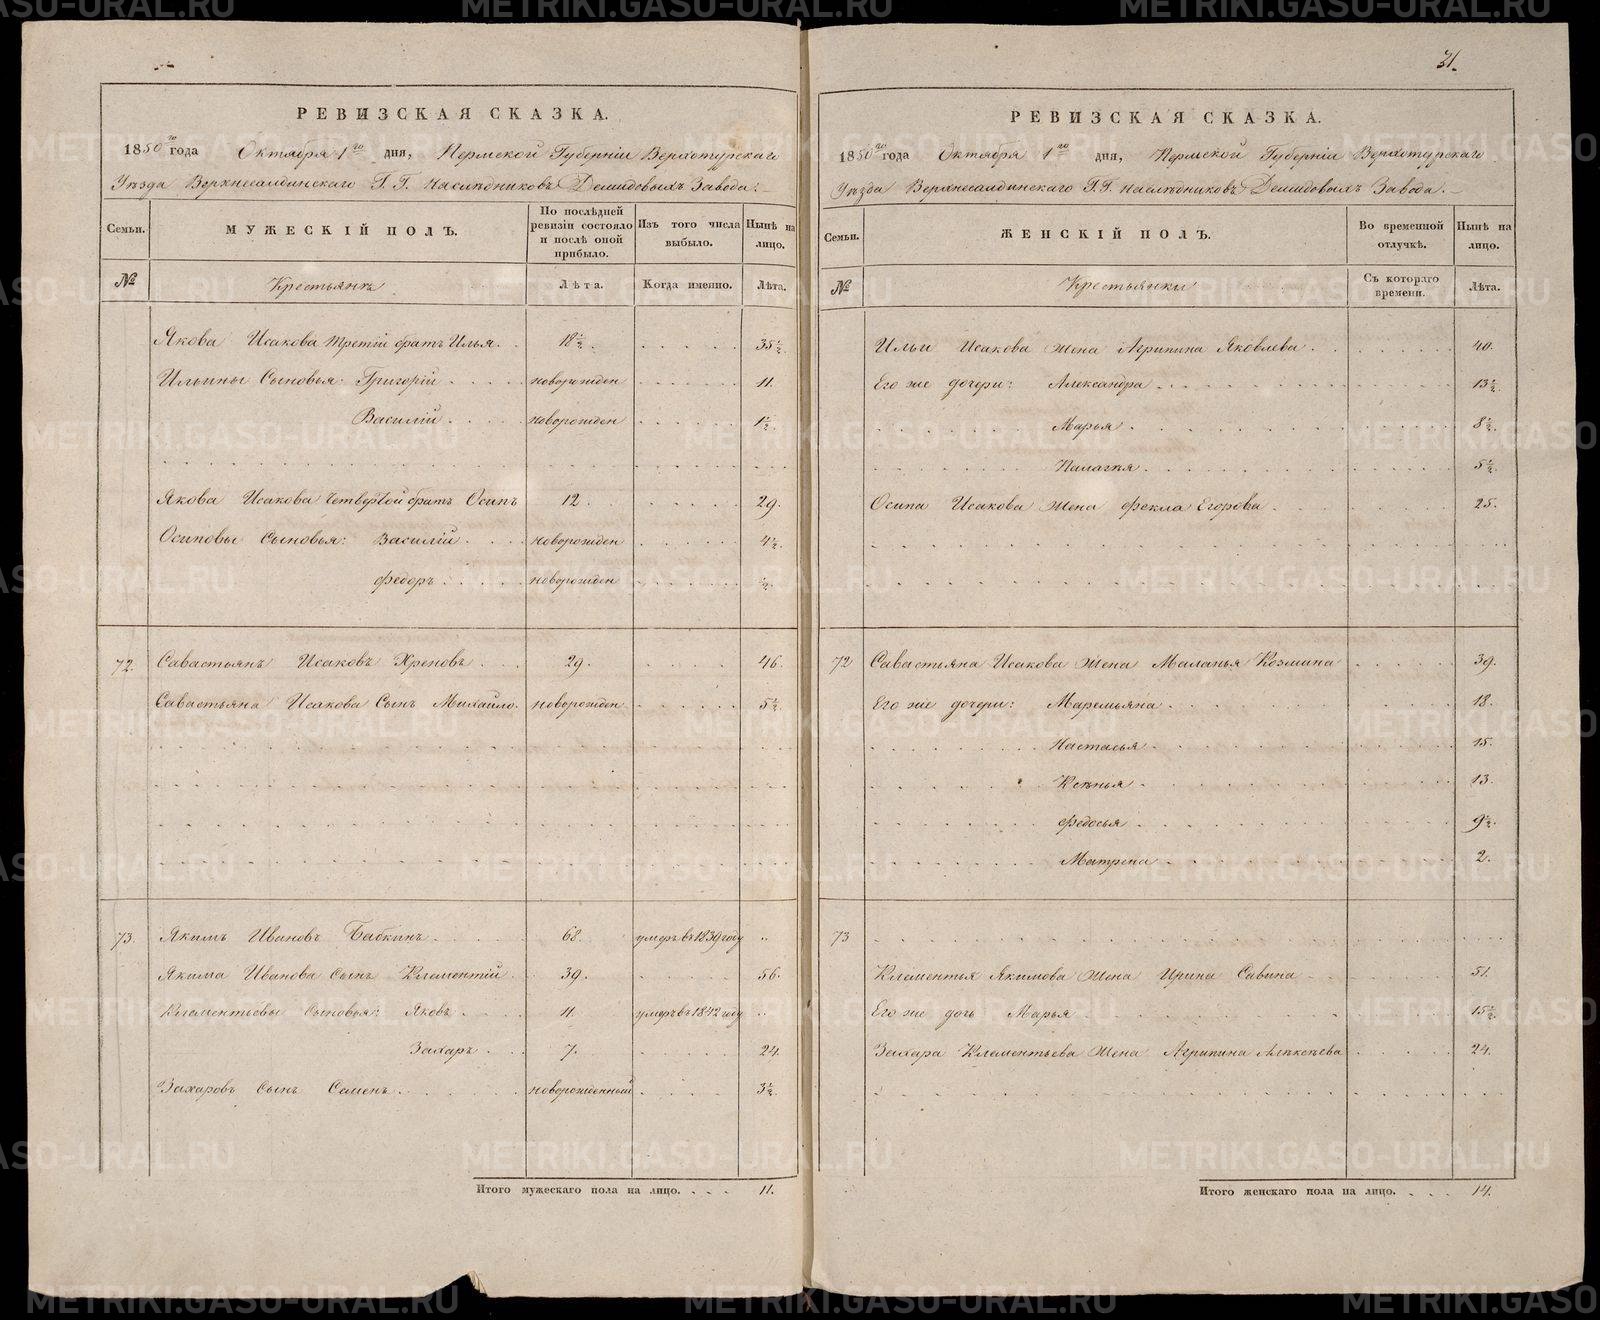 31.
РЕВИЗСКАЯ СКАЗКА.
1850го года Октября 1го дня, Пермской Губерніи Верхотурскаго
Уѣзда Верхнесалдинскаго Г.Г. Наслѣдниковъ Демидовыхъ Завода.
Семьи.
МУЖЕСКІЙ ПОЛЪ.
По послѣдней ревизіи состояло и послѣ оной прибыло.
Изъ того числа выбыло.
Нынѣ на лицо.
№ Крестьянъ Лѣта. Когда именно. Лѣта.
Якова Исакова третій братъ Илья. 18½. 35½.
Ильины Сыновья: Григорій новорожден 11.
Василій новорожден 1½.
Якова Исакова Четвертой братъ Осипъ 12. 29.
Осиповы Сыновья: Василій новорожден 4½.
Федоръ новорожден ½.
72. Савастьянъ Исаковъ Хреновъ 29. 46.
Савастьяна Исакова Сынъ Михайло. новорожден 5½.
73. Якимъ Ивановъ Бабкинъ 68. умеръ въ 1839 году
Якима Иванова Сынъ Клементій 39. 56.
Клементьевы Сыновья: Яковъ 11. умеръ въ 1842 году
Захаръ 7. 24.
Захаровъ Сынъ Семенъ новорожденный 3½.
Итого мужескаго пола на лицо. 11.
РЕВИЗСКАЯ СКАЗКА.
1850го года Октября 1го дня, Пермской Губерніи Верхотурскаго
Уѣзда Верхнесалдинскаго Г.Г. Наслѣдниковъ Демидовыхъ Завода.
Семьи.
ЖЕНСКІЙ ПОЛЪ.
Во временной отлучкѣ.
Нынѣ на лицо.
№ Крестьянки Съ котораго времени. Лѣта.
Ильи Исакова жена Агрипина Яковлева 40.
Его же дочери: Александра 13½.
Марья 8½.
Палагея 5½.
Осипа Исакова жена Фекла Егорова 25.
72 Савастьяна Исакова жена Маланья Козмина 39.
Его же дочери: Маремьяна 18.
Настасья 15.
Ксенья 13.
Федосья 9½.
Матрена 2.
73
Клементья Якимова жена Ирина Савина 51.
Его же дочь Марья 15½.
Захара Клементьева жена Агрипина Алексѣева 24.
Итого женскаго пола на лицо. 14.
METRIKI.GASO-URAL.RU